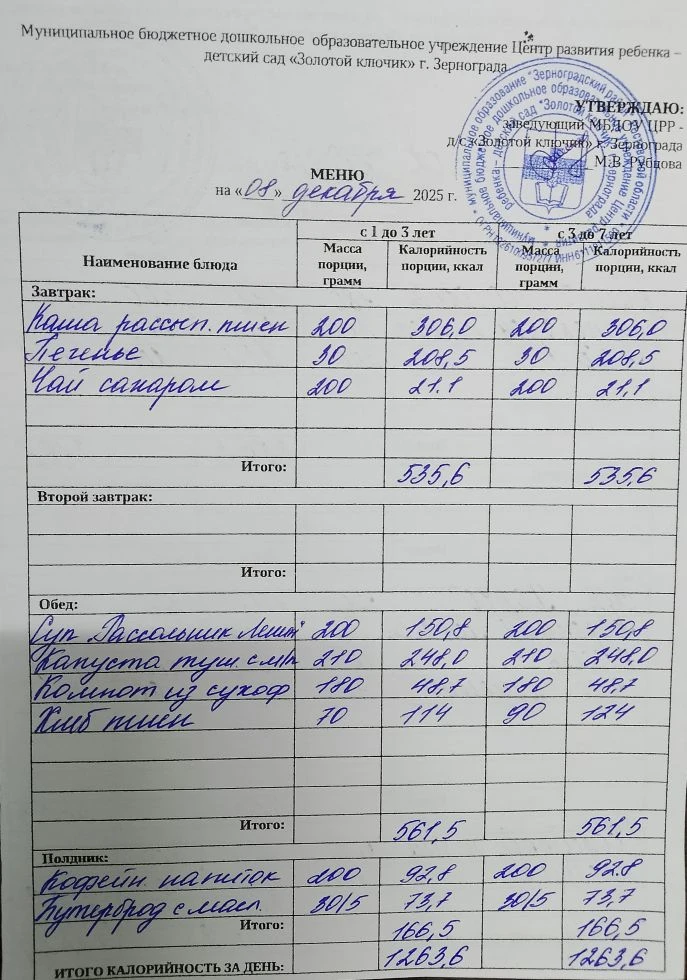 Муниципальное бюджетное дошкольное образовательное учреждение Центр развития ребенка –
детский сад «Золотой ключик» г. Зернограда
УТВЕРЖДАЮ:
заведующий МБДОУ ЦРР -
д/с «Золотой ключик» г. Зернограда
М.В. Рубцова
МЕНЮ
на «08» декабря 2025 г.
Наименование блюда с 1 до 3 лет с 3 до 7 лет
Масса порции, грамм Калорийность порции, ккал Масса порции, грамм Калорийность порции, ккал
Завтрак:
Каша рассып. пшен 200 306,0 200 306,0
Печенье 30 208,5 30 208,5
Чай сахаром 200 21.1 200 21,1
Итого: 535,6 535,6
Второй завтрак:
Итого:
Обед:
Суп Рассольник Ленин 200 150,8 200 150,8
Капуста туш. с м/п 210 248,0 210 248,0
Компот из сухоф 180 48,7 180 48,7
Хлеб пшен 70 114 90 124
Итого: 561,5 561,5
Полдник:
Кофейн. напиток 200 92,8 200 92,8
Бутерброд с масл. 30/5 73,7 30/5 73,7
Итого: 166,5 166,5
ИТОГО КАЛОРИЙНОСТЬ ЗА ДЕНЬ: 1263,6 1263,6